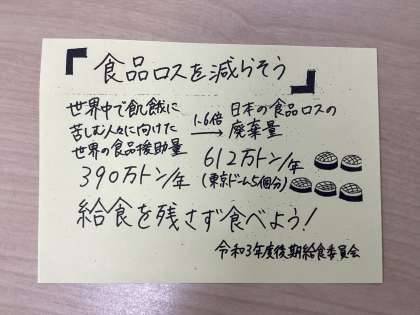 「食品ロスを減らそう」
世界中で飢餓に
苦しむ人々に向けた
世界の食品援助量
390万トン/年
1.6倍
→
日本の食品ロスの
廃棄量
612万トン/年
(東京ドーム5個分)
給食を残さず食べよう!
令和3年度後期給食委員会